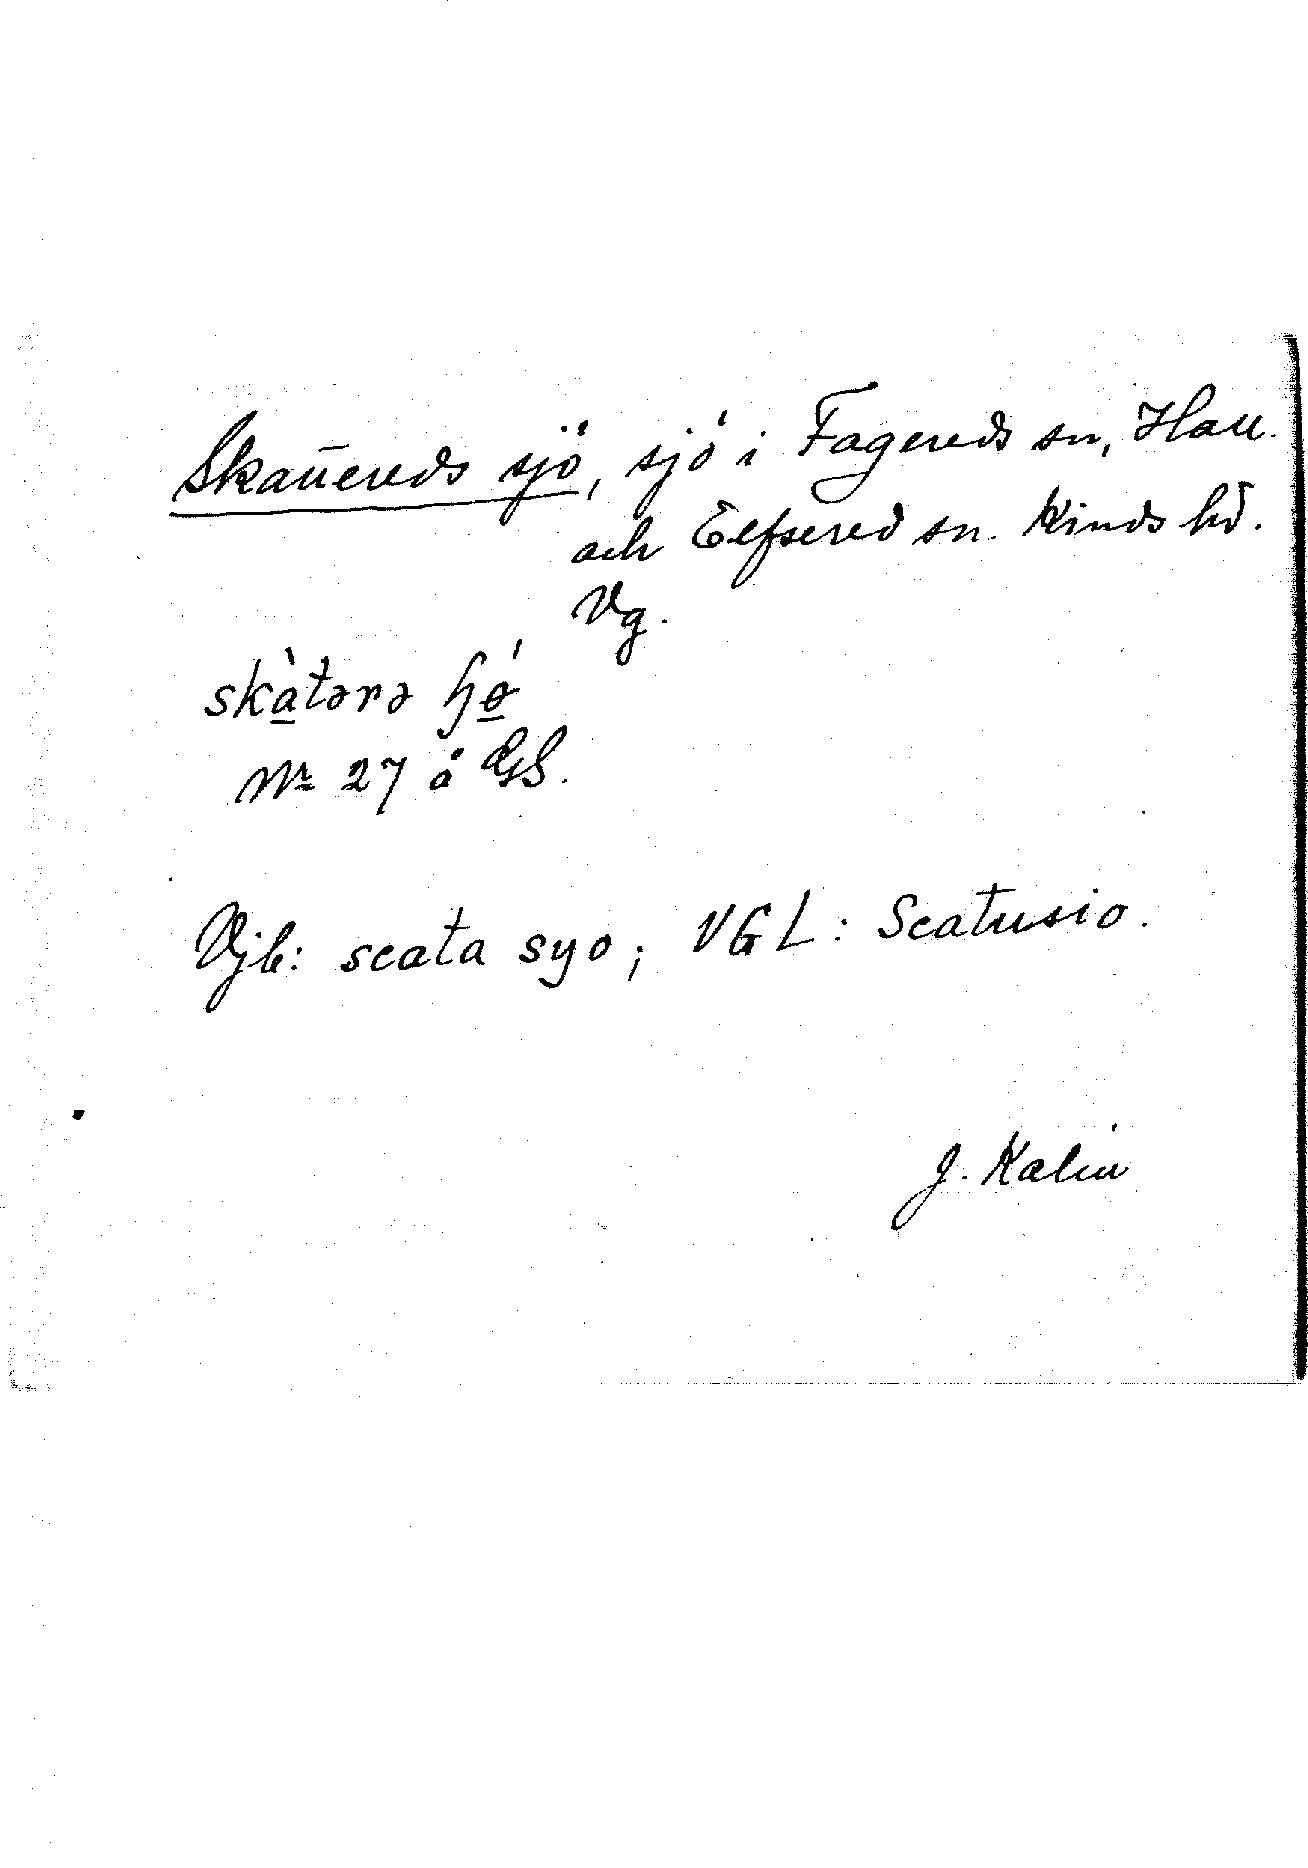 Skattereds sjö, sjö i Fagereds sn, Hall.
och Elfsered sn. Kinds hd.
Vg.
skàtərə ɧǿ
Nr 27 å GS.
Vjb: scata syo; VGL: Scatusio.
J. Kalin